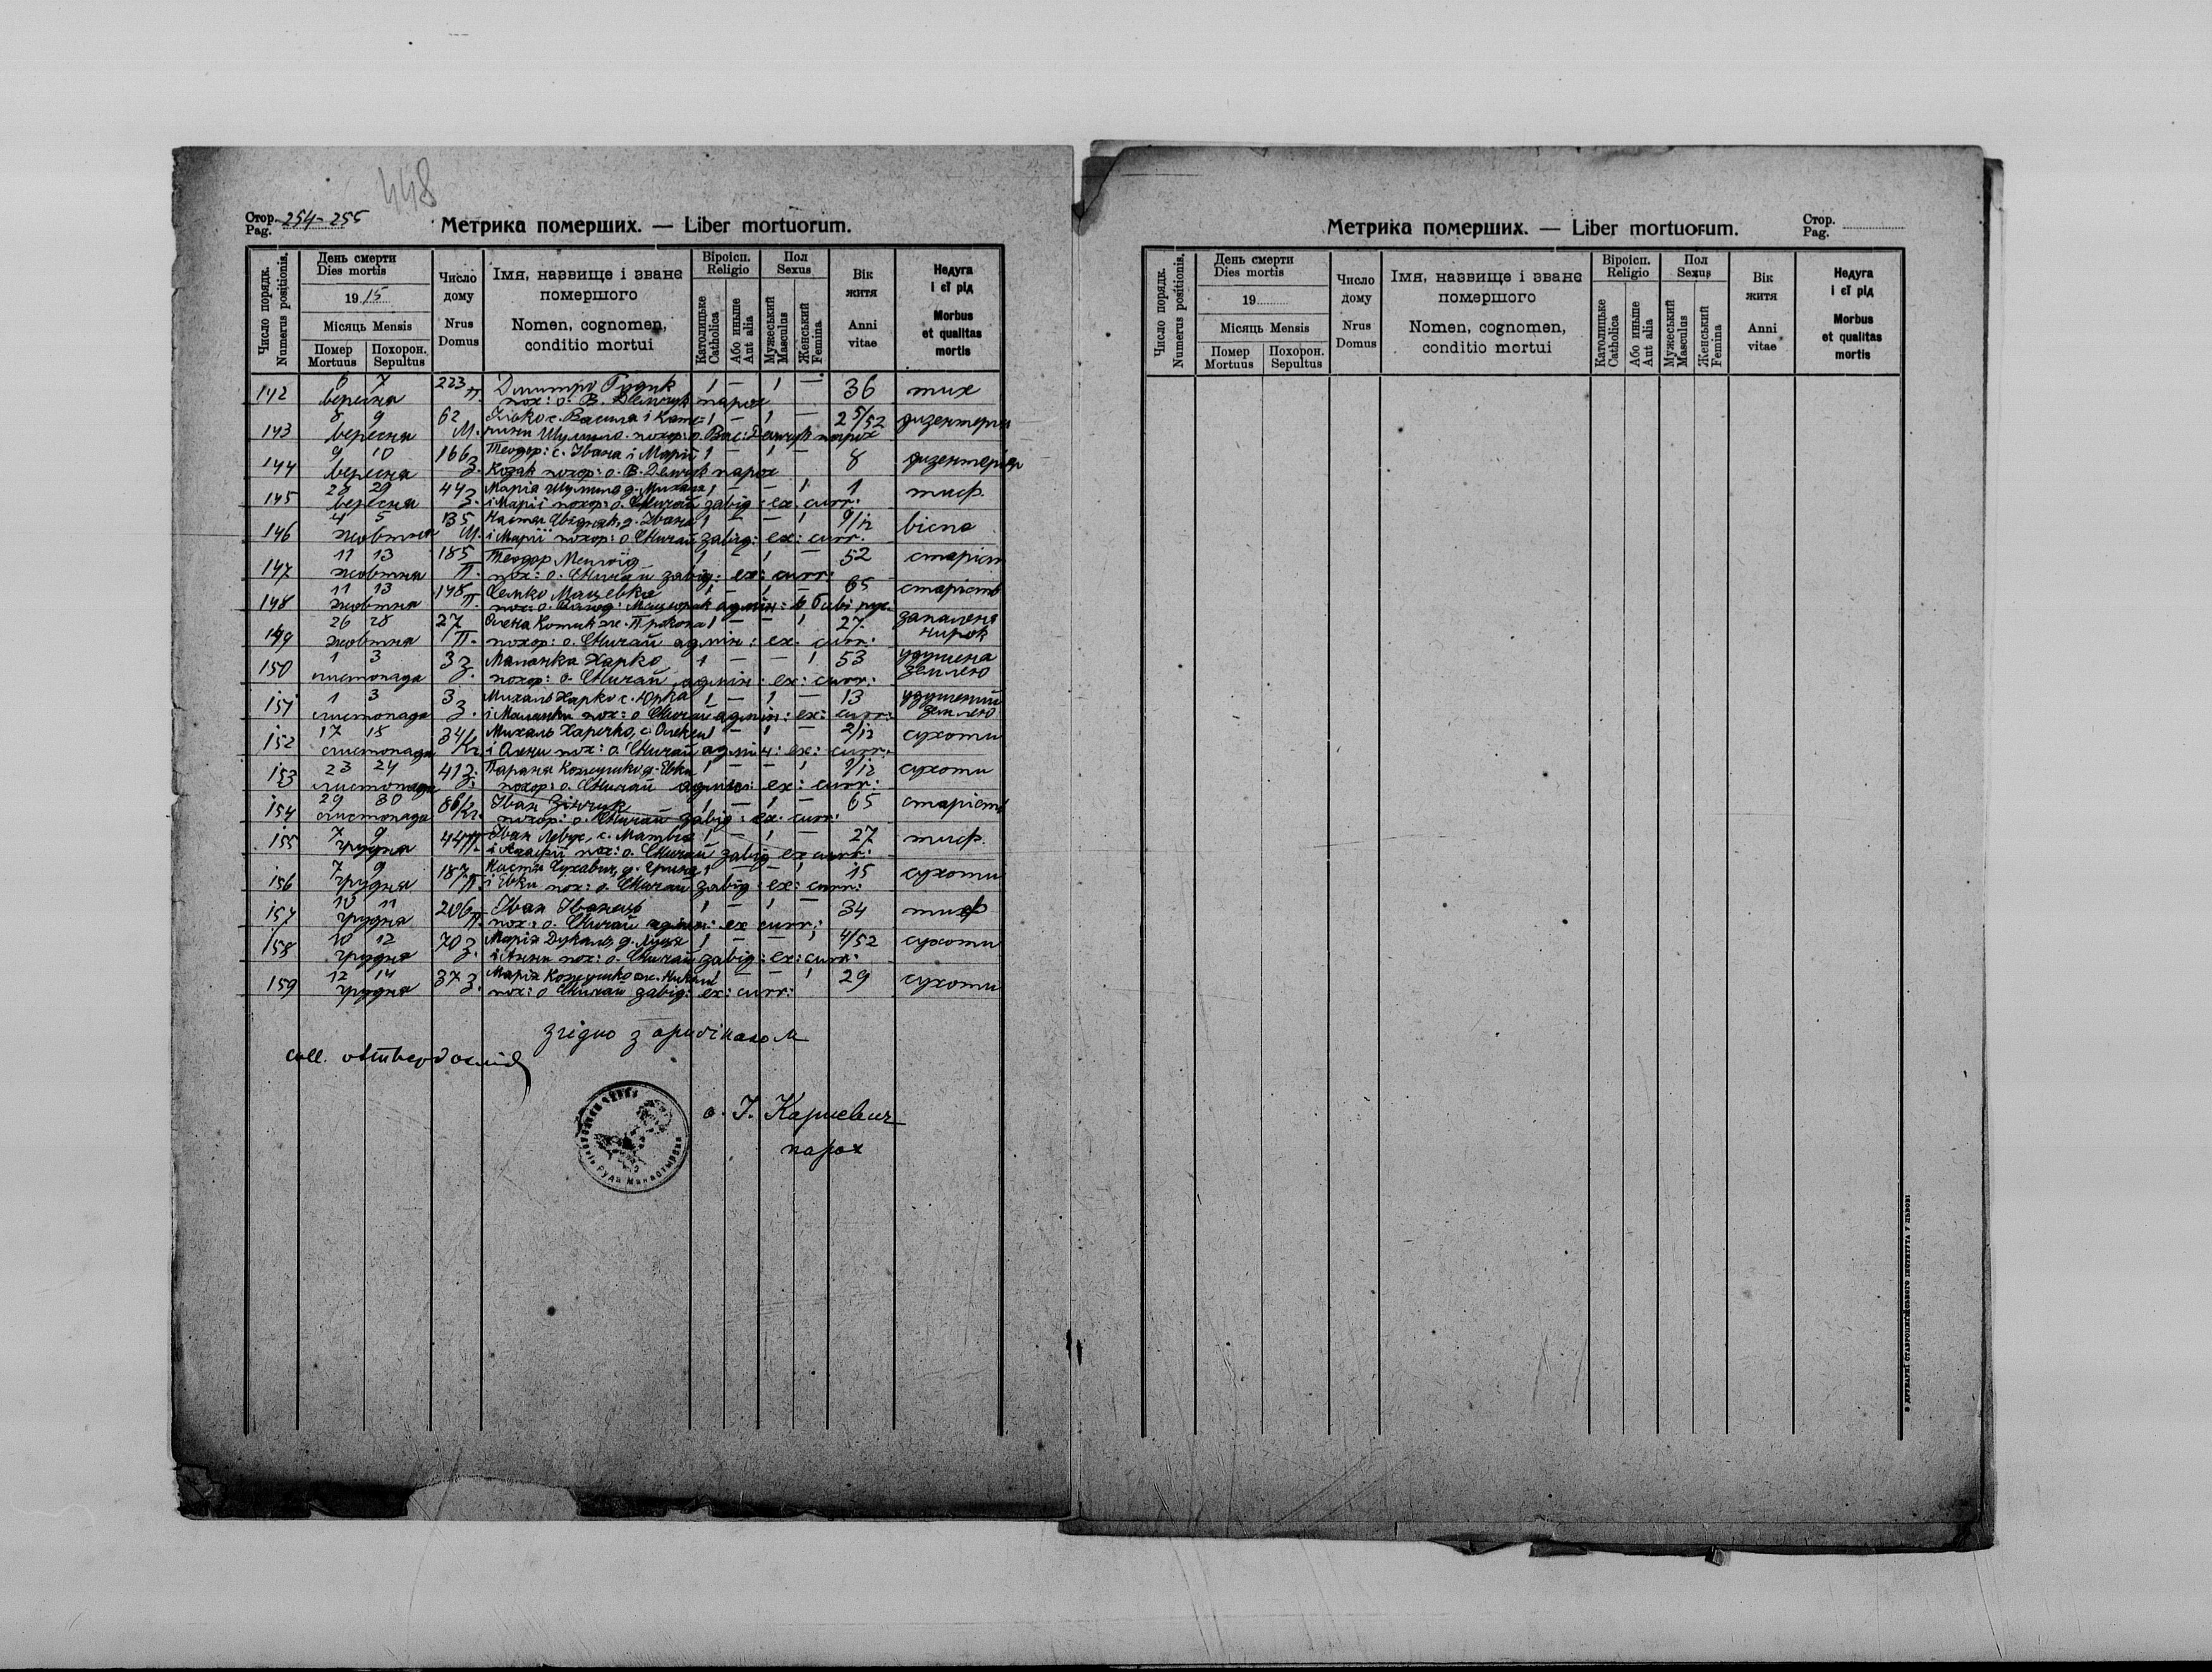 448
Стор. Pag. 254-255
Метрика померших. — Liber mortuorum.
Число порядк. Numerus positionis.
День смерти Dies mortis
1915
Місяць Mensis
Помер Mortuus
Похорон. Sepultus
Число дому Nrus Domus
Імя,назвище і званє помершого
Nomen, cognomen, conditio mortui
Віроісп. Religio
Католицьке Catholica
Або иньше Aut alia
Пол Sexus
Мужеський Masculus
Женський Femina
Вік житя Anni vitae
Недуга і єї рід Morbus et qualitas mortis
142 6 7 вересня 223 П. Дмитро 1 — 1 — 36 тиф
пох: о. В. Демчук парох
143 8 9 вересня 62 М. с. Василя і Кате- 1 — 1 — 2 5/52 дизентерия
рини похор: о. Вас: Демчук парох
144 9 10 вересня 166 З. Теодор: с. Івана і Марії 1 — 1 — 8 дизентерія
Козак похор: о. В. Демчук парох
145 28 29 вересня 44 З. Марія д. Михала 1 — — 1 1 тиф.
і Марії похор: о. завід: ex. curr:
146 4 5 жовтня 135 Настя д. Івана 1 — — 1 9/12 віспа
і Марії похор: о. завід: ex: curr.
147 11 13 жовтня 185 П. Теодор 1 — 1 — 52 старість
пох: о. завід: ex: curr:
148 11 13 жовтня 148 П. Семко Мацевко 1 — 1 — 65 старість
пох: о. адмін: в
149 26 28 жовтня 27 П. Олена Котик ж. Прокопа 1 — — 1 27 запалення нирок
похор: о. адмін: ex. curr:
150 1 3 листопада 3 З. Маланка Харко 1 — — 1 53 удушена землею
похор: о. адмін: ex: curr:
151 1 3 листопада 3 З. Михаль Харко с. Юрка 1 — 1 — 13 удушений землею
і Маланки пох: о. адмін: ex: curr:
152 17 18 листопада 34 Кг. Михаль Харечко, с. Олекси 1 — 1 — 2/12 сухоти
і Олени пох: о. адмін: ex: curr.
153 23 24 листопада 41 З. Параня Кожушко д. Євки 1 — — 1 9/12 сухоти
похор: о. адмін: ex: curr:
154 29 30 листопада 86 Кг. Іван Зінчук 1 — 1 — 65 старість
похор: о. завід: ex. curr:
155 7 9 грудня 44 П. Іван Левус, с. Матвія 1 — 1 — 27 тиф.
пох: о. завід ex curr:
156 7 9 грудня 187 П. Настя д. 1 — — 1 15 сухоти
і Євки пох: о. завід: ex: curr:
157 10 11 грудня 206 П. Іван Іванець 1 — 1 — 34 тиф
пох: о. адмін: ex curr:
158 10 12 грудня 70 З. Марія д. Луця 1 — — 1 4/52 сухоти
і Анни пох: о. завід: ex: curr:
159 12 14 грудня 37 З. Марія Кожушко ж. 1 — — 1 29 сухоти
пох: о. завід: ex: curr:
згідно з оригіналом
coll.
о. І. Карпевич
парох
Руда Манастирска
Метрика померших. — Liber mortuorum.
Стор. Pag.
Число порядк. Numerus positionis.
День смерти Dies mortis
19
Місяць Mensis
Помер Mortuus
Похорон. Sepultus
Число дому Nrus Domus
Імя,назвище і званє помершого
Nomen, cognomen, conditio mortui
Віроісп. Religio
Католицьке Catholica
Або иньше Aut alia
Пол Sexus
Мужеський Masculus
Женський Femina
Вік житя Anni vitae
Недуга і єї рід Morbus et qualitas mortis
З ДРУКАРНЇ СТАВРОПИГІЙСЬКОГО ІНСТИТУТА У ЛЬВОВІ